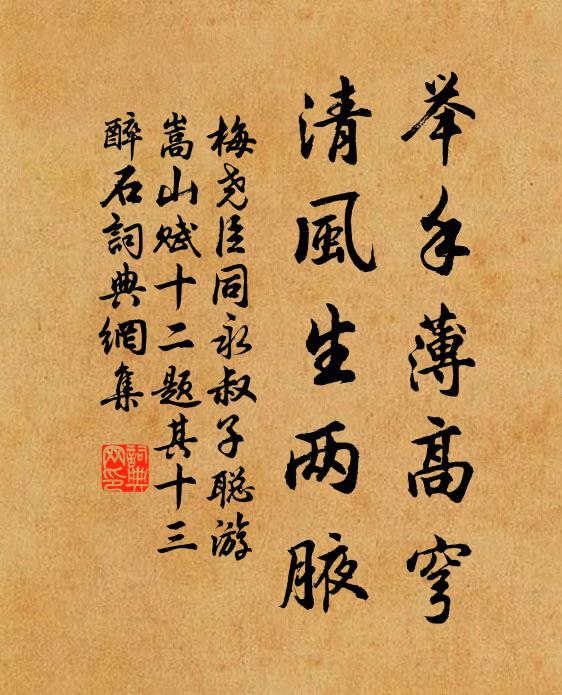 举手薄高穹
清風生两腋
梅尧臣同永叔子聪游
嵩山赋十二题其十三
醉石詞典網集
詞典
网印